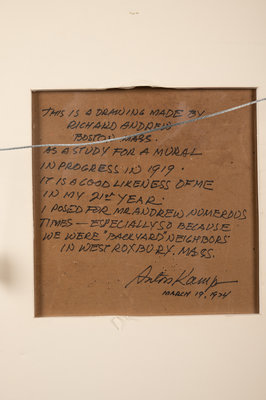 THIS IS A DRAWING MADE BY
RICHARD ANDREW
BOSTON MASS.
AS A STUDY FOR A MURAL
IN PROGRESS IN 1919.
IT IS A GOOD LIKENESS OF ME
IN MY 21ST YEAR.
I POSED FOR MR. ANDREW NUMEROUS
TIMES — ESPECIALLY SO BECAUSE
WE WERE "BACKYARD" NEIGHBORS
IN WEST ROXBURY, MASS.
Anton Kamp
MARCH 19, 1974